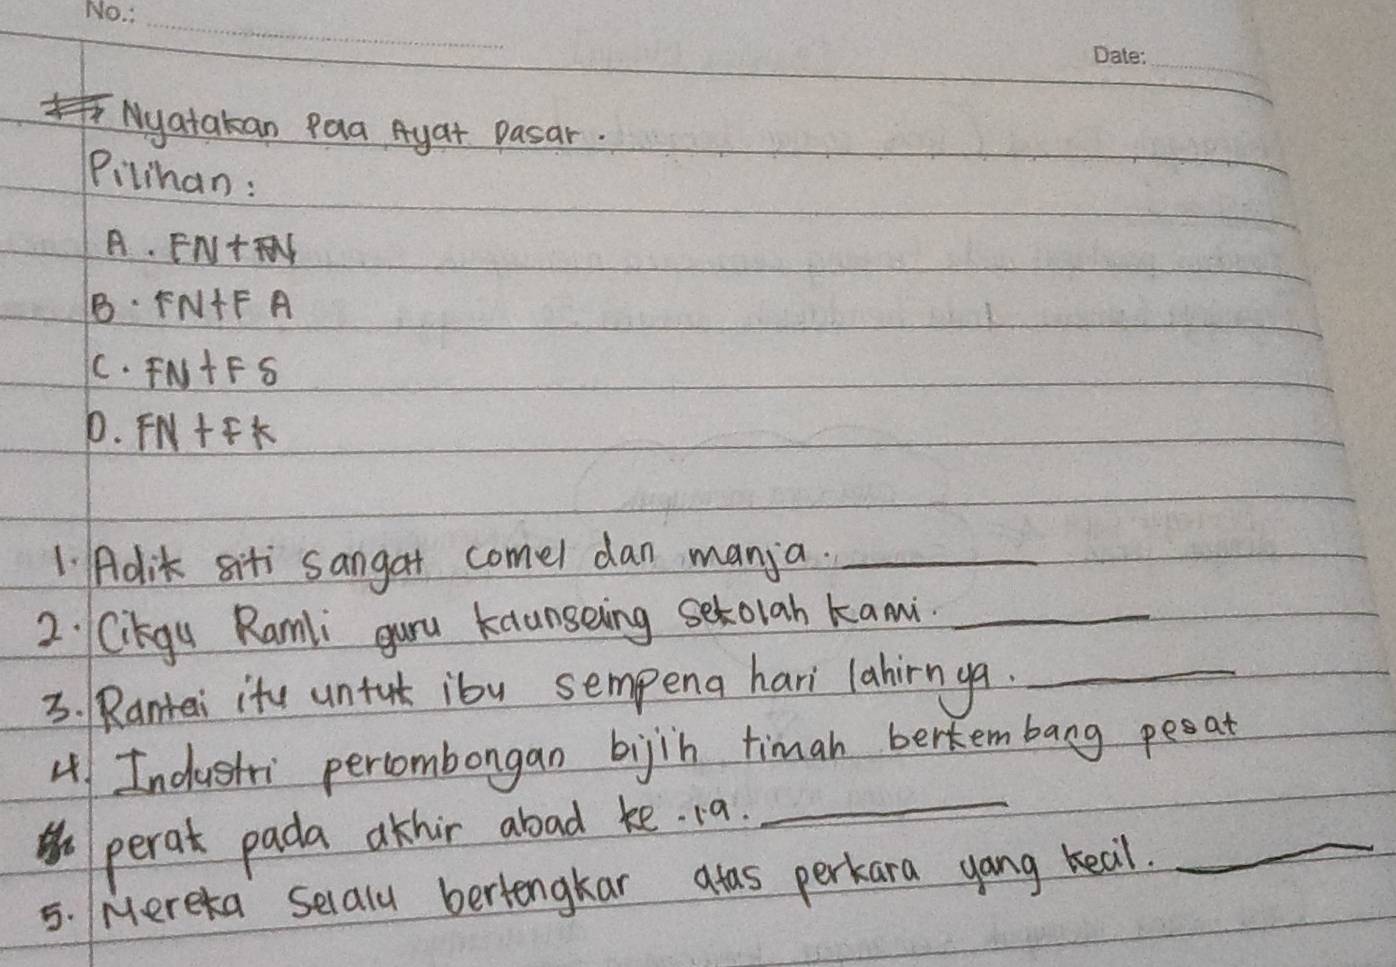 No.:
Date:
Nyatakan Pola Ayat Dasar.
Pilihan:
A. FN+FN
B. FN+F A
C. FN+F S
D. FN + F K
1. Adik siti sangat comel dan manja.
2. Cikgu Ramli guru kaunseing sekolah kami.
3. Rantai itu untuk ibu sempena hari lahirnya.
4. Industri perlombongan bijih timah berkembang pesat
perak pada akhir abad ke-19.
5. Mereka selalu bertengkar atas perkara yang kecil.